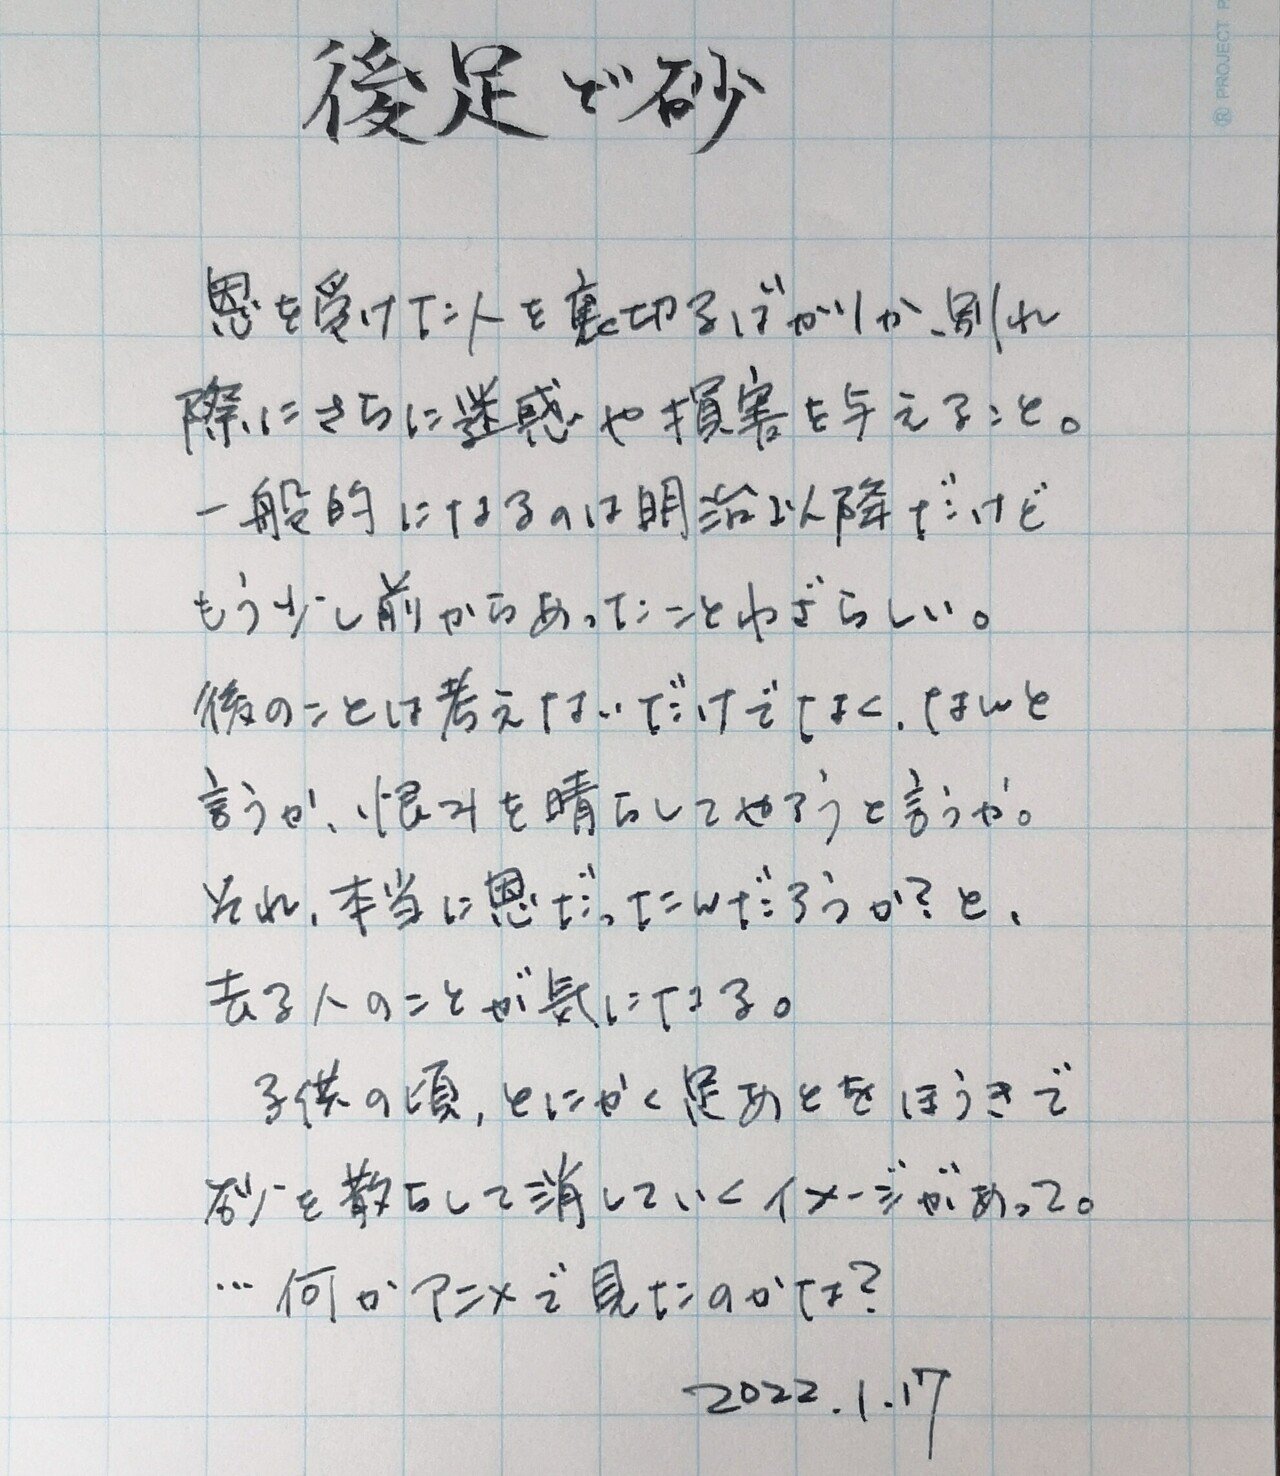 後足で砂
恩を受けた人を裏切るばかりか、別れ
際にさらに迷惑や損害を与えること。
一般的になるのは明治以降だけど
もう少し前からあったことわざらしい。
後のことは考えないだけでなく、なんと
言うか、恨みを晴らしてやろうと言うか。
それ、本当に恩だったんだろうか?と、
去る人のことが気になる。
子供の頃、とにかく足あとをほうきで
砂を散らして消していくイメージがあって。
…何かアニメで見たのかな?
2022.1.17
® PROJECT P